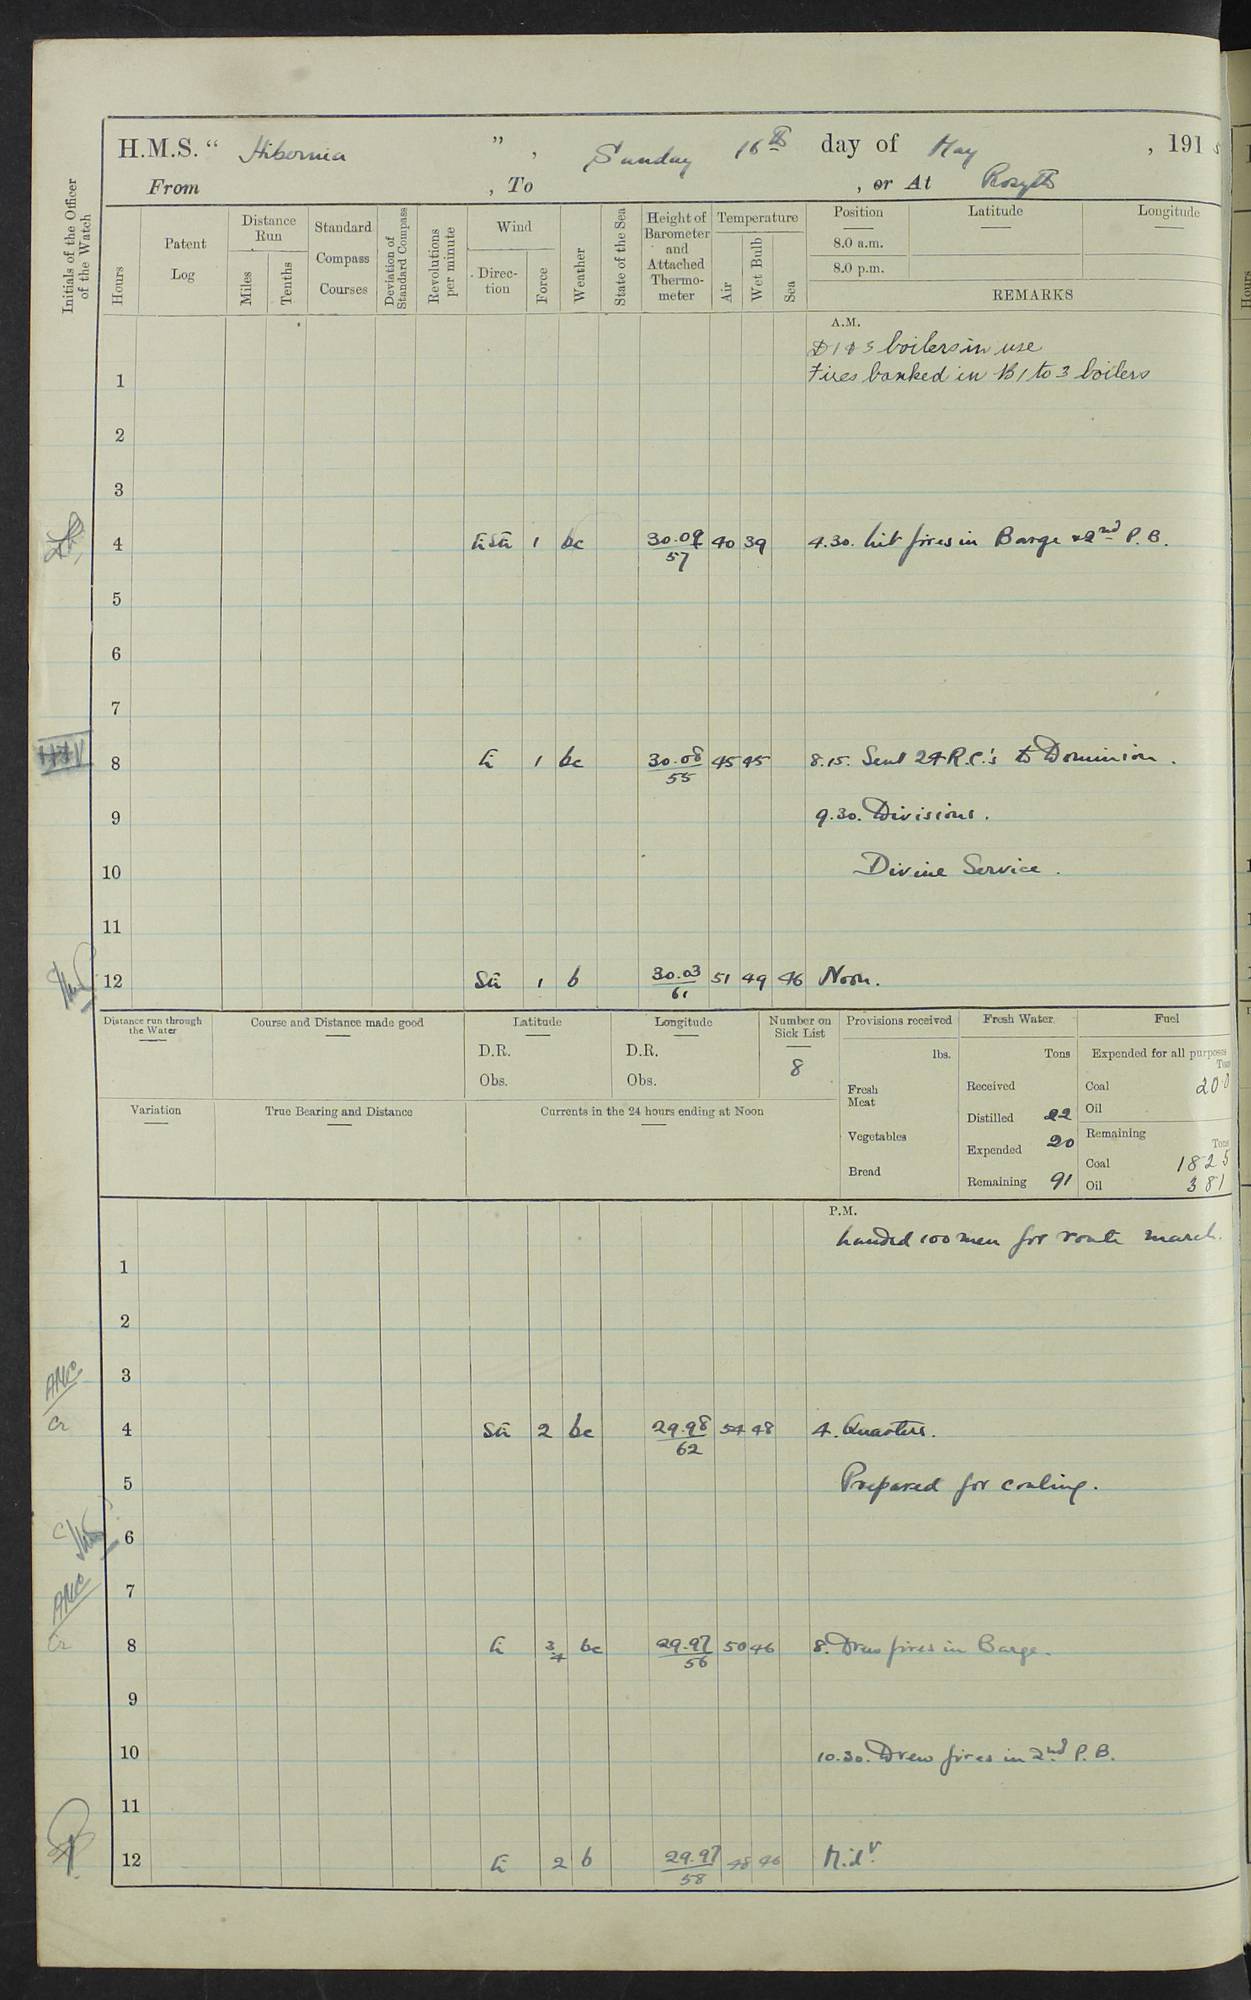 H.M.S. "Hibernia", Sunday 16th day of May, 1915
From , To , or At Rosyth
Initials of the Officer of the Watch
Hours
Patent Log
Distance Run
Miles
Tenths
Standard Compass Courses
Deviation of Standard Compass
Revolutions per minute
Wind
Direction
Force
Weather
State of the Sea
Height of Barometer and Attached Thermometer
Temperature
Air
Wet Bulb
Sea
Position Latitude Longitude
8.0 a.m.
8.0 p.m.
REMARKS
A.M.
D 1 & 3 boilers in use
1 Fires banked in B 1 to 3 boilers
2
3
4 ESE 1 bc 30.09/57 40 39 4.30. Lit fires in Barge & 2nd P.B.
5
6
7
8 E 1 bc 30.08/55 45 45 8.15. Sent 24 R.C.'s to Dominion.
9 9.30. Divisions.
10 Divine Service.
11
12 SE 1 b 30.03/61 51 49 46 Noon.
Distance run through the Water
Course and Distance made good
Latitude
D.R.
Obs.
Longitude
D.R.
Obs.
Number on Sick List
8
Provisions received
lbs.
Fresh Meat
Vegetables
Bread
Fresh Water
Tons
Received
Distilled 22
Expended 20
Remaining 91
Fuel
Expended for all purposes
Tons
Coal 20.0
Oil
Remaining
Tons
Coal 1825
Oil 381
Variation
True Bearing and Distance
Currents in the 24 hours ending at Noon
P.M.
Landed 100 men for route march.
1
2
3
ANC
Cr
4 SE 2 bc 29.98/62 54 48 4. Quarters.
5 Prepared for coaling.
6
7
ANC
Cr
8 E 3/4 bc 29.97/56 50 46 8. Drew fires in Barge.
9
10 10.30. Drew fires in 2nd P.B.
11
12 E 2 b 29.97/58 48 46 Midt.